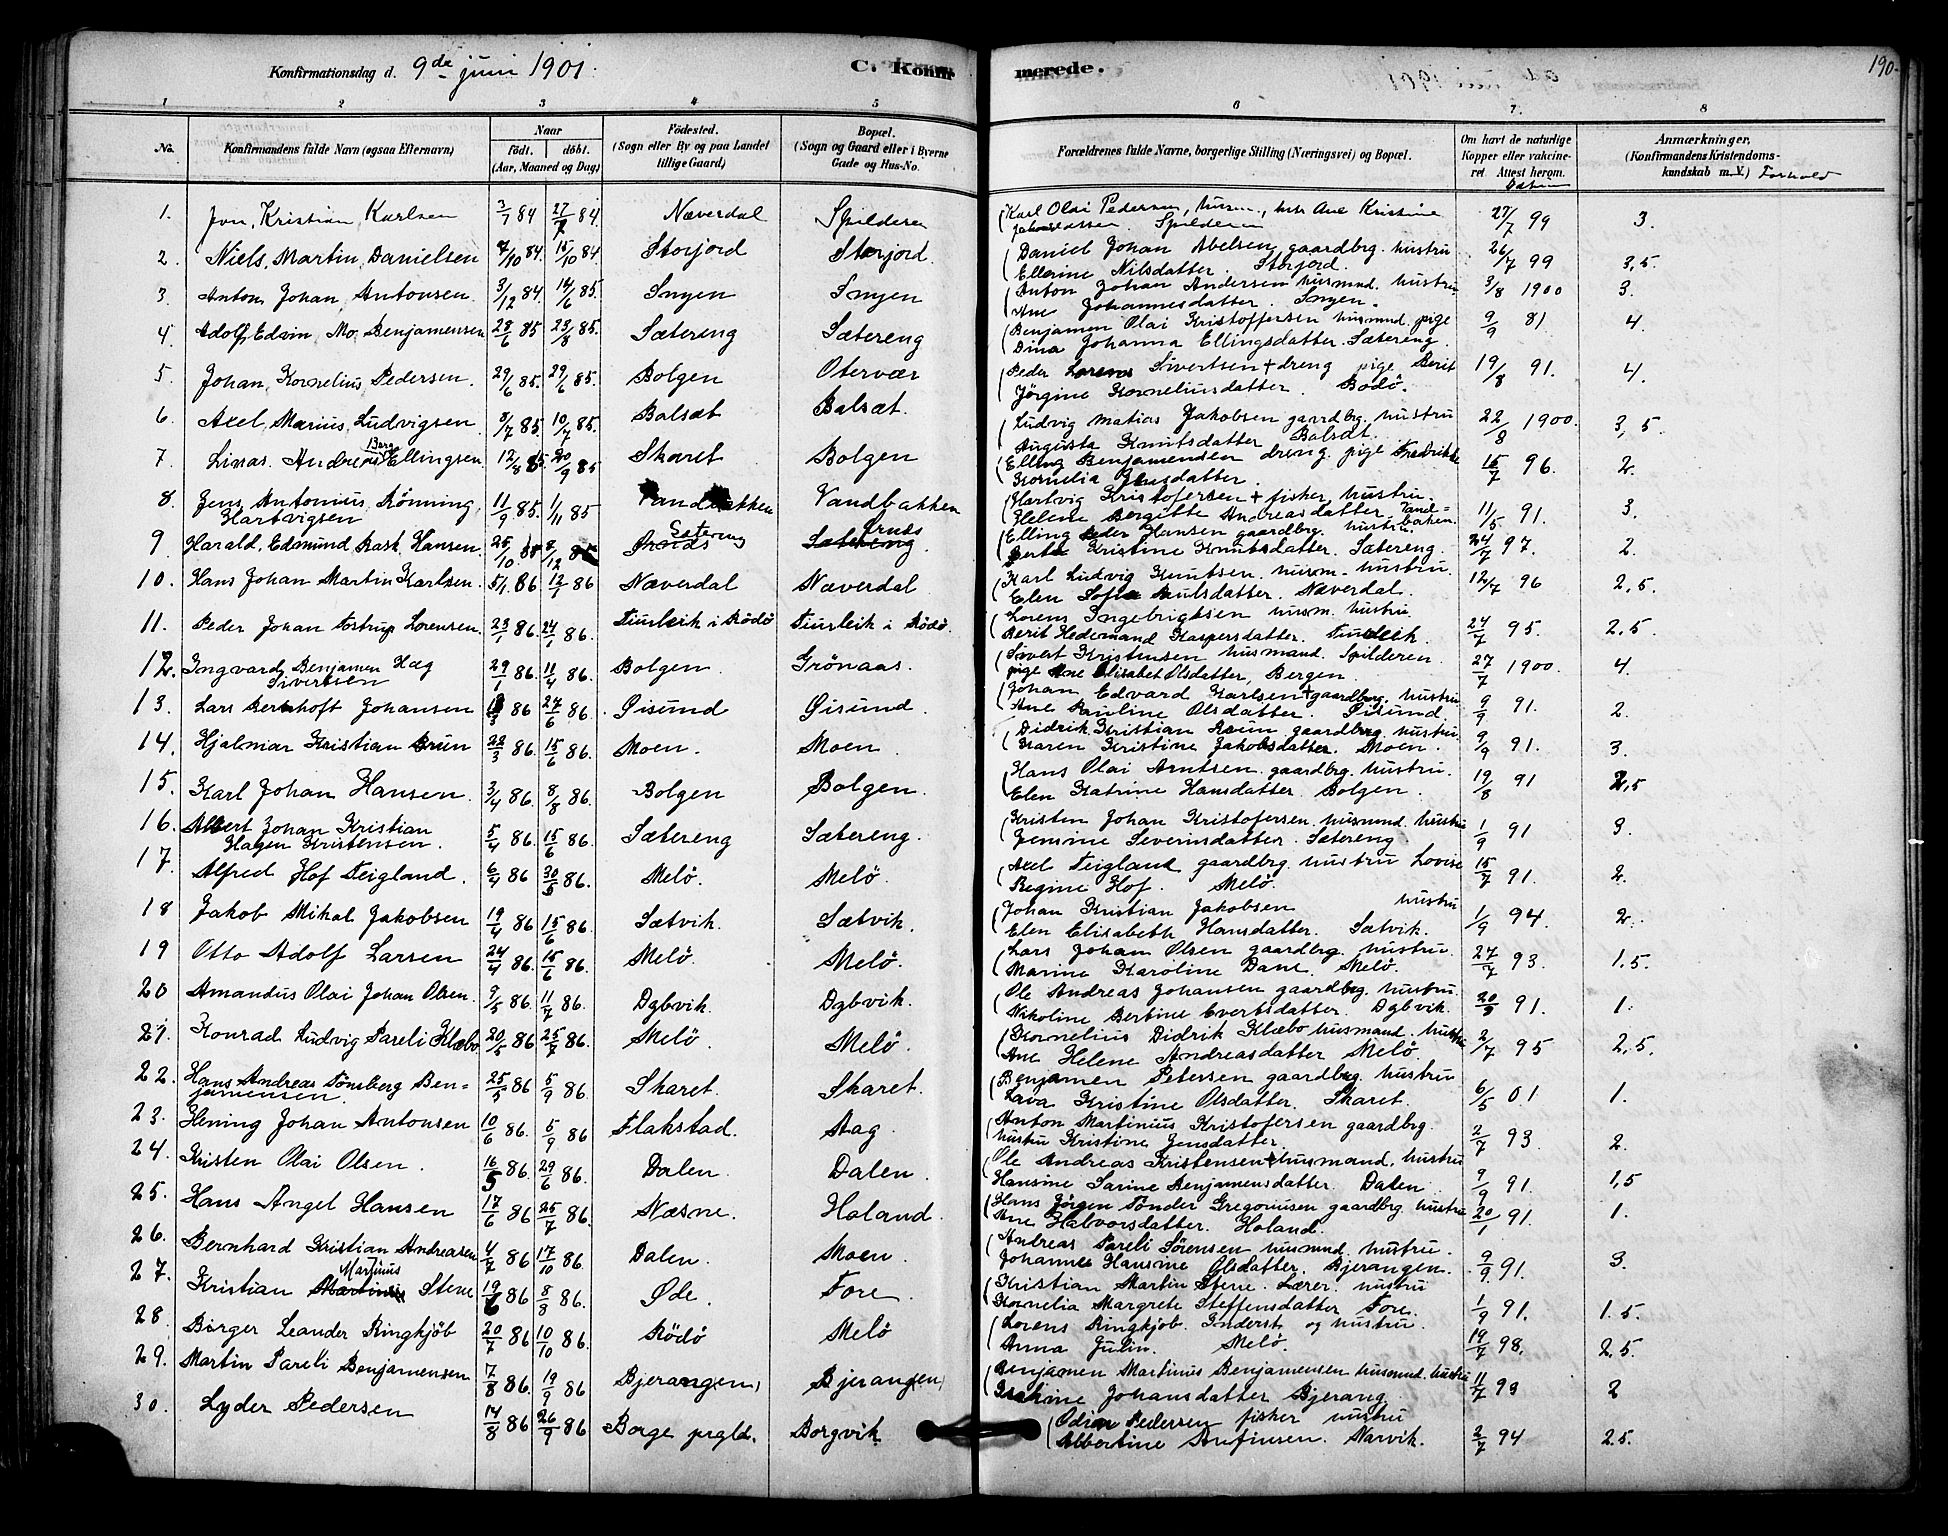 190.
Konfirmationsdag d. 9de juni 1901.
C. Konfir merede.
1 2 3 4 5 6 7. 8
No. Konfirmandens fulde Navn (ogsaa Efternavn) Naar födt. döbt. (Aar, Maaned og Dag) Födested. (Sogn eller By og paa Landet tillige Gaard) Bopæl. (Sogn og Gaard eller i Byerne Gade og Hus-No. Forældrenes fulde Navne, borgerlige Stilling (Næringsvei) og Bopæl. Om havt de naturlige Kopper eller vakcineret. Attest herom. Datum Anmærkninger, (Konfirmandens Kristendomskundskab m.V.) Forhold
1. Jon, Kristian Karlsen 3/7 84 27/7 84. Næverdal Spilderen Karl Olai Pedersen, husm., Ane Kristine Spilderen 27/7 99 3.
2. Niels, Martin, Danielsen 7/10 84. 15/10 84 Storjord Storjord. Daniel Johan Abelsen gaardbrg. hustru Ellerine Nilsdatter. Storjord. 26/7 99 3,5.
3. Anton, Johan, Antonsen. 3/12 84. 14/6 85. Ingen Ingen Anton Johan Andersen husmnd. hustru Ane Johannesdatter. Ingen. 3/8 1900 3.
4. Adolf, Edvin, Mo, Benjamensen 28/6 85 23/8 85. Sætereng Sætereng Benjamen Olai Kristoffersen husmnd. pige Dina Johanna Ellingsdatter. Sætereng. 9/9 81 4.
5. Johan, Kornelius Pedersen. 29/6 85. 29/6 85. Bolgen Otervær Peder Lorens Sivertsen + dreng pige Berit Jörgine Korneliusdatter. Bodö. 19/8 91. 4.
6. Axel, Marius, Ludvigsen 8/7 85. 10/7 85. Balsæt Balsæt. Ludvig Matias Jakobsen gaardbrg. hustru Augusta Knutsdatter Balsæt. 22/8 1900. 3,5.
7. Linas. Andreas Berg Ellingsen 12/8 85. 20/9 85 Skaret Bolgen Elling Benjamensen dreng. pige Fredrikke Kornelia Jensdatter. 15/7 96. 2.
8. Jens, Antonius, Rönning, Hartvigsen 11/9 85. 1/11 85 Vandbakken Vandbakken Hartvig Kristofersen + fisker, hustru. Helene Bergitte Andreasdatter. Vandbakken. 11/5 91. 3.
9. Harald, Edmund, Rask, Hansen. 25/10 85 8/12 85 Sætereng Sætereng. Elling Peder Hansen gaardbrg. hustru Berta Kristine Knutsdatter. Sætereng. 24/7 97. 2.
10. Hans Johan Martin Karlsen. 5/1 86 12/1 86 Næverdal Næverdal Karl Ludvig Knutsen. husm. hustru. Elen Sofie Paulsdatter. Næverdal. 12/7 96 2,5.
11. Peder Johan Tostrup Lorensen. 23/1 86. 24/1 86. Tiurleik i Rödö Tiurleik i Rödö. Lorens Ingebrigtsen husm. hustru Berit Hedemand Kaspersdatter. Tiurleik. 24/7 95. 2.5.
12. Ingvard, Benjamen Hag Sivertsen 29/1 86. 11/4 86. Bolgen Grönaas. Sivert Kristensen husmand. Spilderen. pige Ane Elisabet Olsdatter, Bergen. 27/7 1900. 4.
13. Lars Bernhoft Johansen 86 27/6 86. Gisund Gisund. Johan Edvard Karlsen + gaardbrg. hustru Ane Pauline Olsdatter. Gisund. 9/9 91. 2.
14. Hjalmar Kristian Bruun 22/3 86. 15/6 86. Moen. Moen Didrik Kristian Bruun gaardbrg. hustru Karen Kristine Jakobsdatter. Moen. 9/9 91. 3.
15. Karl Johan Hansen. 3/4 86. 8/8 86. Bolgen Bolgen. Hans Olai Arntsen. gaardbrg. hustru. Elen Katrine Hansdatter. Bolgen. 19/8 91 2,5
16. Albert Johan Kristian Hagen Kristensen. 5/4 86. 15/6 86. Sætereng Sætereng. Kristen Johan Kristofersen. husmnd. hustru Jensine Severinsdatter. Sætereng 1/9 91 3.
17. Alfred Hof Teigland. 6/4 86 30/5 86. Melö. Melö. Axel Teigland gaardbrg. hustru Lovise Regine Hof. Melö. 15/7 91. 2.
18 Jakob Mikal Jakobsen 19/4 86 15/6 86. Sætvik. Sætvik. Johan Kristian Jakobsen hustru Elen Elisabeth Hansdatter. Sætvik. 1/9 94. 2.
19 Otto Adolf Larsen 24/4 86. 15/6 86. Melö. Melö. Lars Johan Olsen gaardbrg. hustru. Marine Karoline Dane. Melö. 27/7 93. 1.5.
20 Amandus Olai Johan Olsen. 9/5 86. 11/7 86. Dybvik. Dybvik. Ole Andreas Johansen gaardbrg. hustru. Nikoline Bertine Evertsdatter. Dybvik. 20/9 91. 1.
21. Konrad Ludvig Pareli Klæbo 20/5 86 25/7 86. Melö. Melö. Kornelius Didrik Klæbo husmand. hustru Ane Helene Andreasdatter Melö. 2/7 95 2,5.
22. Hans Andreas Tönsberg Benjamensen. 25/5 86 5/9 86. Skaret. Skaret. Benjamen Petersen gaardbrg. hustru Lava Kristine Olsdatter. Skaret. 6/5 01 1.
23. Hening Johan Antonsen 10/6 86. 5/9 86 Flakstad. Aag. Anton Martinius Kristofersen gaardbrg. hustru Kristine Jensdatter. 2/7 93 2.
24. Kristen Olai Olsen. 16/5 86 29/6 86. Dalen. Dalen. Ole Andreas Kristensen + husmand, hustru Hansine Sarine Benjamensdatter. Dalen 9/9 91. 1,5
25. Hans Angel Hansen 17/6 86 25/7 86. Næsne. Haland. Hans Jörgen Tönder Gregoriusen gaardbrg. hustru Ane Halvorsdatter. Haland. 20/1 91. 1.
26. Bernhard Kristian Andreasen 4/7 86 17/10 86. Dalen. Moen. Andreas Pareli Sörensen husmnd. hustru. Johanne Hansine Olsdatter. Bjerangen. 9/9 91. 3.
27. Kristian Martinus Stene 19/6 86 8/8 86. Øde. Fore. Kristian Martin Stene. Lærer. hustru Kornelia Margrete Steffensdatter Fore. 1/9 91. 1.5.
28. Birger Leander Ringkjöb 20/7 86 10/10 86. Rödö Melö Lorens Ringkjöb. Inderst og hustru. Anna Julin. Melö. 19/7 98. 2.5.
29. Martin Pareli Benjamensen 7/8 86. 19/9 86 Bjerangen Bjerangen Benjamen Martinus Benjamensen husmnd. hustru Johansdatter Bjerang. 11/7 93 2
30. Lyder Pedersen 14/8 86 26/9 86 Borge prgld. Borgvik Odin Pedersen fisker hustru Albertine Arnfinsen. Narvik. 2/7 94 2.5.